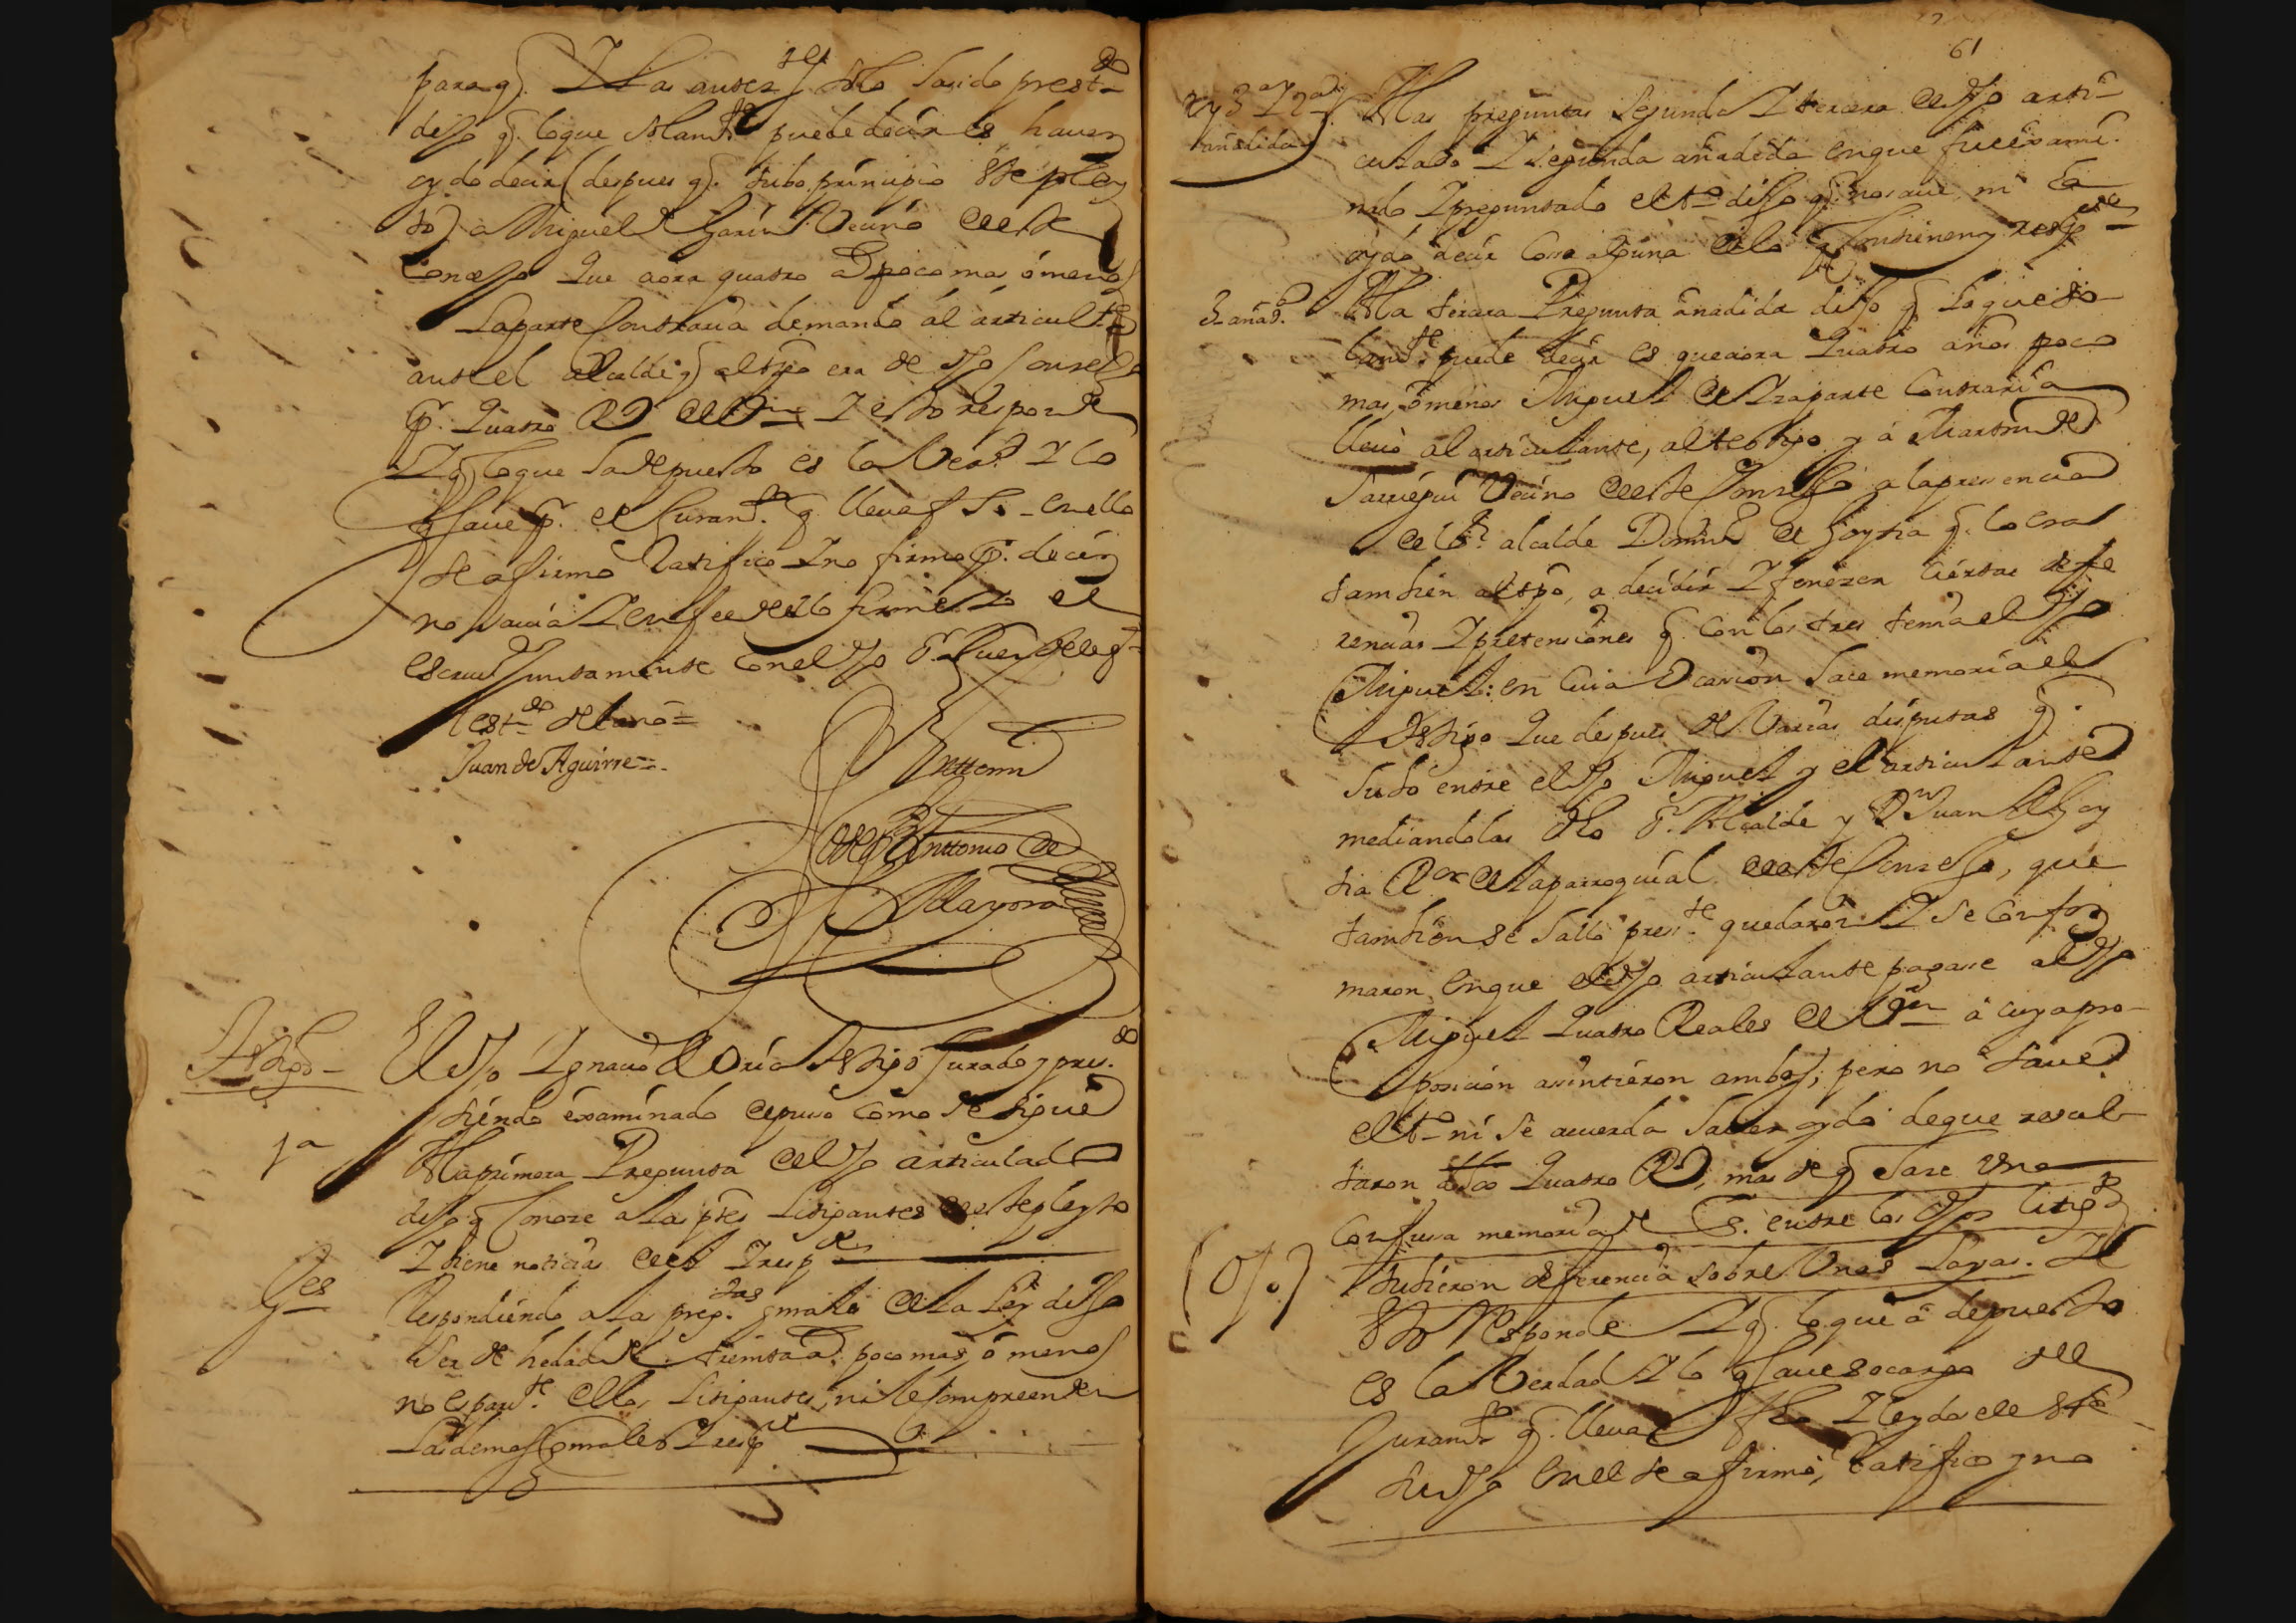 para q. Y las antez. dho ha sido prest.do
dijo q. lo que solam.te puede decir es haver
oydo decir (despues q. tubo principio este pley
to) a Miguel de Garin Vecino de este
Concejo Que aora quatro a.s poco mas ó menos
la parte Contraria demandó al articult.e
ante el Alcalde q al tpo era de dho Concejo
p.r quatro R.s de V.n Y esto responde
Y q lo que ha depuesto es la Verd.d Y lo
q save p.r el Juram.to q lleva f.ho en ello
se afirmo Ratifico Y no firmo p.r decir
no savia Y en fee de ello firme Yo el
escriv.o Juntamente con el dho S.r Juez
test.do de la no=
Juan de Aguirre=
Anttemi
Joseph Anttonio de
Mayora
Testigo
El dho Ignacio de Oria testigo Jurado y pres.do
siendo examinado depuso como se sigue
1a
A la primera Pregunta del dho articulado
dijo q Conoce a las p.tes Litigantes de este pleyto
Y tiene noticia de el Y resp.de
G.es
Respondiendo a las preg.tas gnales de la Ley dijo
ser de hedad de treinta a.s poco mas ó menos
no es par.te de los Litigantes, ni le Compreenden
las demas Gnales Y resp.de
61
2 y 3a Y 2a
añadida
A las preguntas segunda Y tercera del dho arti-
culado Y segunda añadida en que fue exami-
nado Y preguntado el t.o dijo q. no save ni ha
oydo decir Cosa alguna de lo q Contienen y resp.de
3 añad.
A la tercera Pregunta añadida dijo q lo que so-
lam.te puede decir es que aora Quatro años poco
mas, ó menos Miguel de la parte Contraria
llevó al articulante, al testigo y á Martin de
Sarriegui Vecino de este Concejo a la presencia
de el S.r alcalde Domingo de Goytia q. lo era
tambien al tpo, a decidir Y fenezer Ciertas dife
rencias Y pretensiones q. Con los tres tenia el dho
Miguel: en Cuia Ocasion hace memoria el
testigo Que despues de Varias disputas q.
hubo entre el dho Miguel y el articulante
mediandolas dho S.r Alcalde y D.n Juan de Goy
tia R.or de la parroquial de este Concejo, que
tambien se halló pres.te quedaron Y se Confor
maron en que el dho articulante pagase al dho
Miguel Quatro Reales de V.n á cuya pro-
posicion asintieron ambos; pero no save
el t.o ni se acuerda haber oydo de que resul-
taron dhos Quatro R.s, mas de q hace Una
Confusa memoria de q. entre los dhos litig.tes
tubieron diferencia sobre Unas layas. Y
(O/o)
esto responde Y q. lo que á depuesto
es la Verdad Y lo q save so cargo del
Juram.to q. lleva f.ho Y leydosele este
su dho en el se afirmó, Ratifico y no